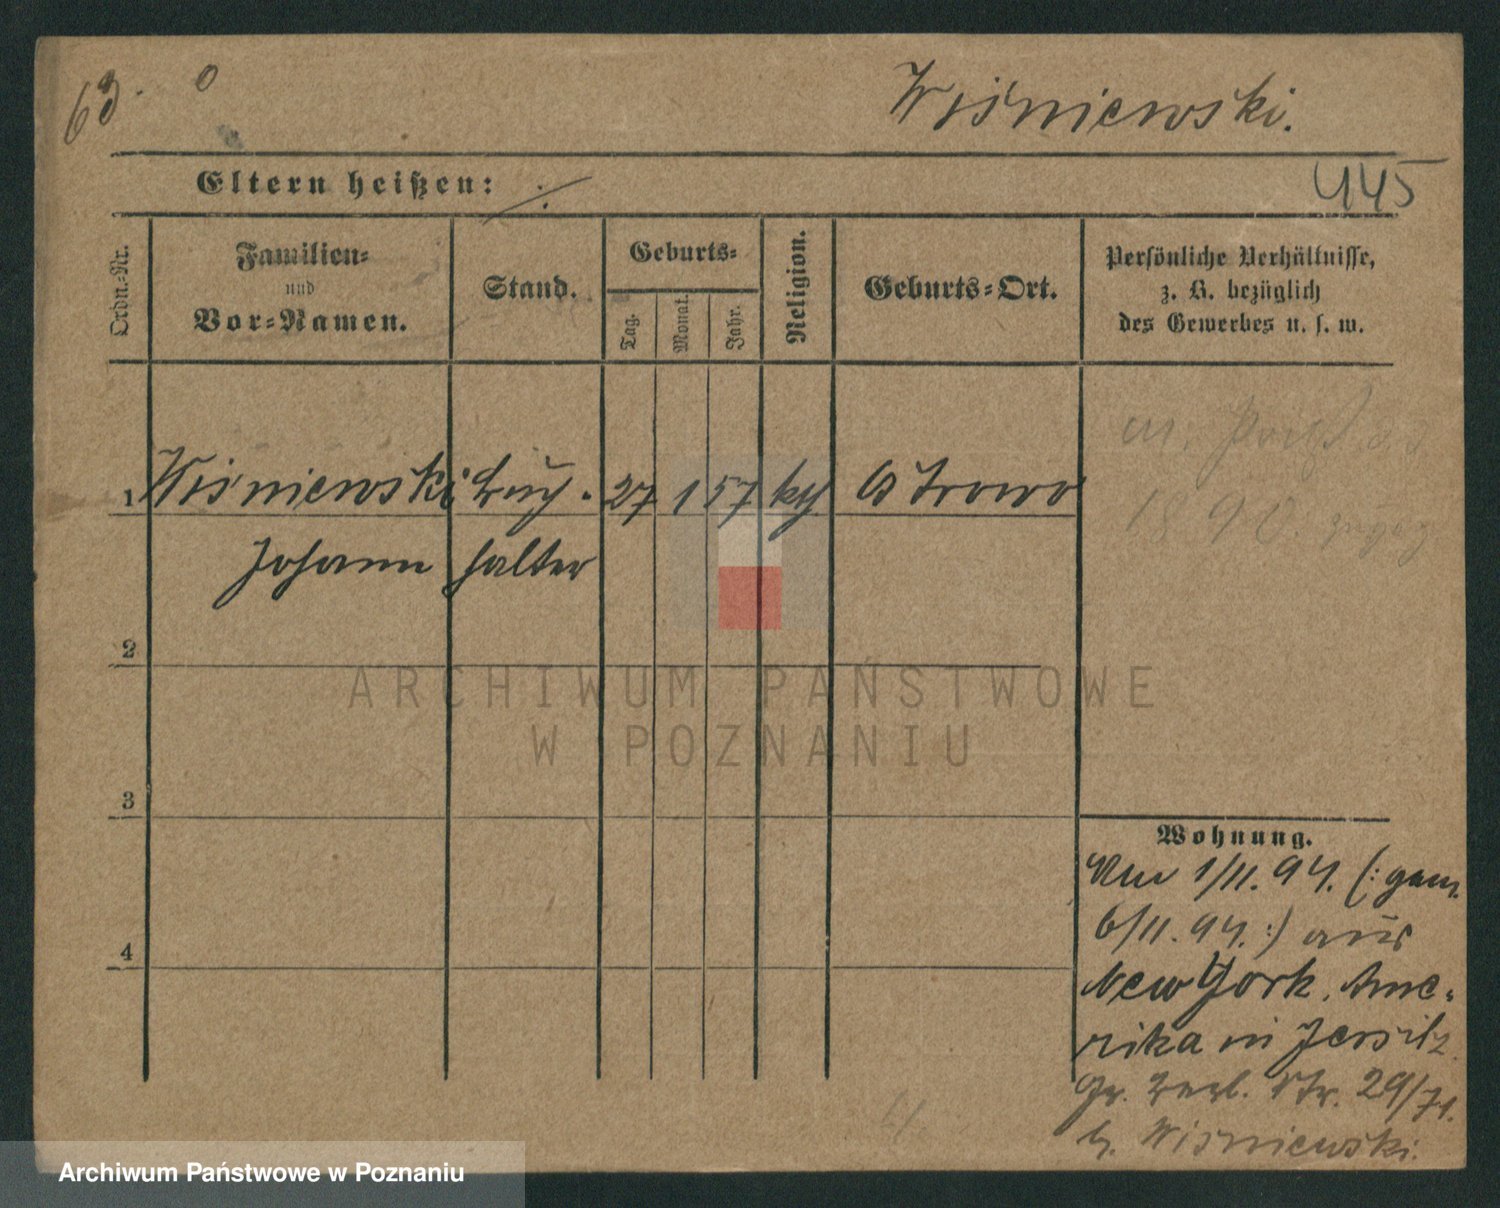 63. 0
Wiśniewski.
Eltern heißen: ./.
445
Ordn.-Nr.
Familien-
und
Vor-Namen.
Stand.
Geburts-
Tag.
Monat.
Jahr.
Religion.
Geburts-Ort.
Persönliche Verhältnisse,
z. B. bezüglich
des Gewerbes u. s. w.
1 Wisniewski Buch- 27 1 57 kth Ostrowo
Johann halter
1890.
2
3
4
Wohnung.
Am 1/11. 94. (: gem.
6/11. 94. :) aus
New York, Ame-
rika in Jersitz
Gr. Berl. Str. 29/71.
b. Wisniewski.
ARCHIWUM PAŃSTWOWE
W POZNANIU
Archiwum Państwowe w Poznaniu